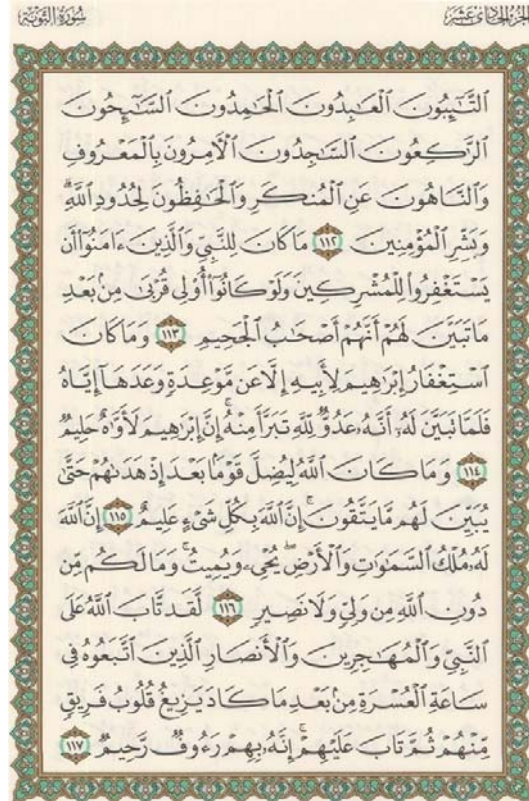 الجزء الحادي عشر
سورة التوبة
ٱلتَّـٰٓئِبُونَ ٱلۡعَـٰبِدُونَ ٱلۡحَـٰمِدُونَ ٱلسَّـٰٓئِحُونَ
ٱلرَّٰكِعُونَ ٱلسَّـٰجِدُونَ ٱلۡأٓمِرُونَ بِٱلۡمَعۡرُوفِ
وَٱلنَّاهُونَ عَنِ ٱلۡمُنكَرِ وَٱلۡحَـٰفِظُونَ لِحُدُودِ ٱللَّهِۗ
وَبَشِّرِ ٱلۡمُؤۡمِنِينَ ١١٢ مَا كَانَ لِلنَّبِيِّ وَٱلَّذِينَ ءَامَنُوٓاْ أَن
يَسۡتَغۡفِرُواْ لِلۡمُشۡرِكِينَ وَلَوۡ كَانُوٓاْ أُوْلِي قُرۡبَىٰ مِنۢ بَعۡدِ
مَا تَبَيَّنَ لَهُمۡ أَنَّهُمۡ أَصۡحَـٰبُ ٱلۡجَحِيمِ ١١٣ وَمَا كَانَ
ٱسۡتِغۡفَارُ إِبۡرَٰهِيمَ لِأَبِيهِ إِلَّا عَن مَّوۡعِدَةٖ وَعَدَهَآ إِيَّاهُ
فَلَمَّا تَبَيَّنَ لَهُۥٓ أَنَّهُۥ عَدُوّٞ لِّلَّهِ تَبَرَّأَ مِنۡهُۚ إِنَّ إِبۡرَٰهِيمَ لَأَوَّٰهٌ حَلِيمٞ
١١٤ وَمَا كَانَ ٱللَّهُ لِيُضِلَّ قَوۡمَۢا بَعۡدَ إِذۡ هَدَىٰهُمۡ حَتَّىٰ
يُبَيِّنَ لَهُم مَّا يَتَّقُونَۚ إِنَّ ٱللَّهَ بِكُلِّ شَيۡءٍ عَلِيمٌ ١١٥ إِنَّ ٱللَّهَ
لَهُۥ مُلۡكُ ٱلسَّمَٰوَٰتِ وَٱلۡأَرۡضِۖ يُحۡيِۦ وَيُمِيتُۚ وَمَا لَكُم مِّن
دُونِ ٱللَّهِ مِن وَلِيّٖ وَلَا نَصِيرٖ ١١٦ لَّقَد تَّابَ ٱللَّهُ عَلَى
ٱلنَّبِيِّ وَٱلۡمُهَٰجِرِينَ وَٱلۡأَنصَارِ ٱلَّذِينَ ٱتَّبَعُوهُ فِي
سَاعَةِ ٱلۡعُسۡرَةِ مِنۢ بَعۡدِ مَا كَادَ يَزِيغُ قُلُوبُ فَرِيقٖ
مِّنۡهُمۡ ثُمَّ تَابَ عَلَيۡهِمۡۚ إِنَّهُۥ بِهِمۡ رَءُوفٞ رَّحِيمٞ ١١٧